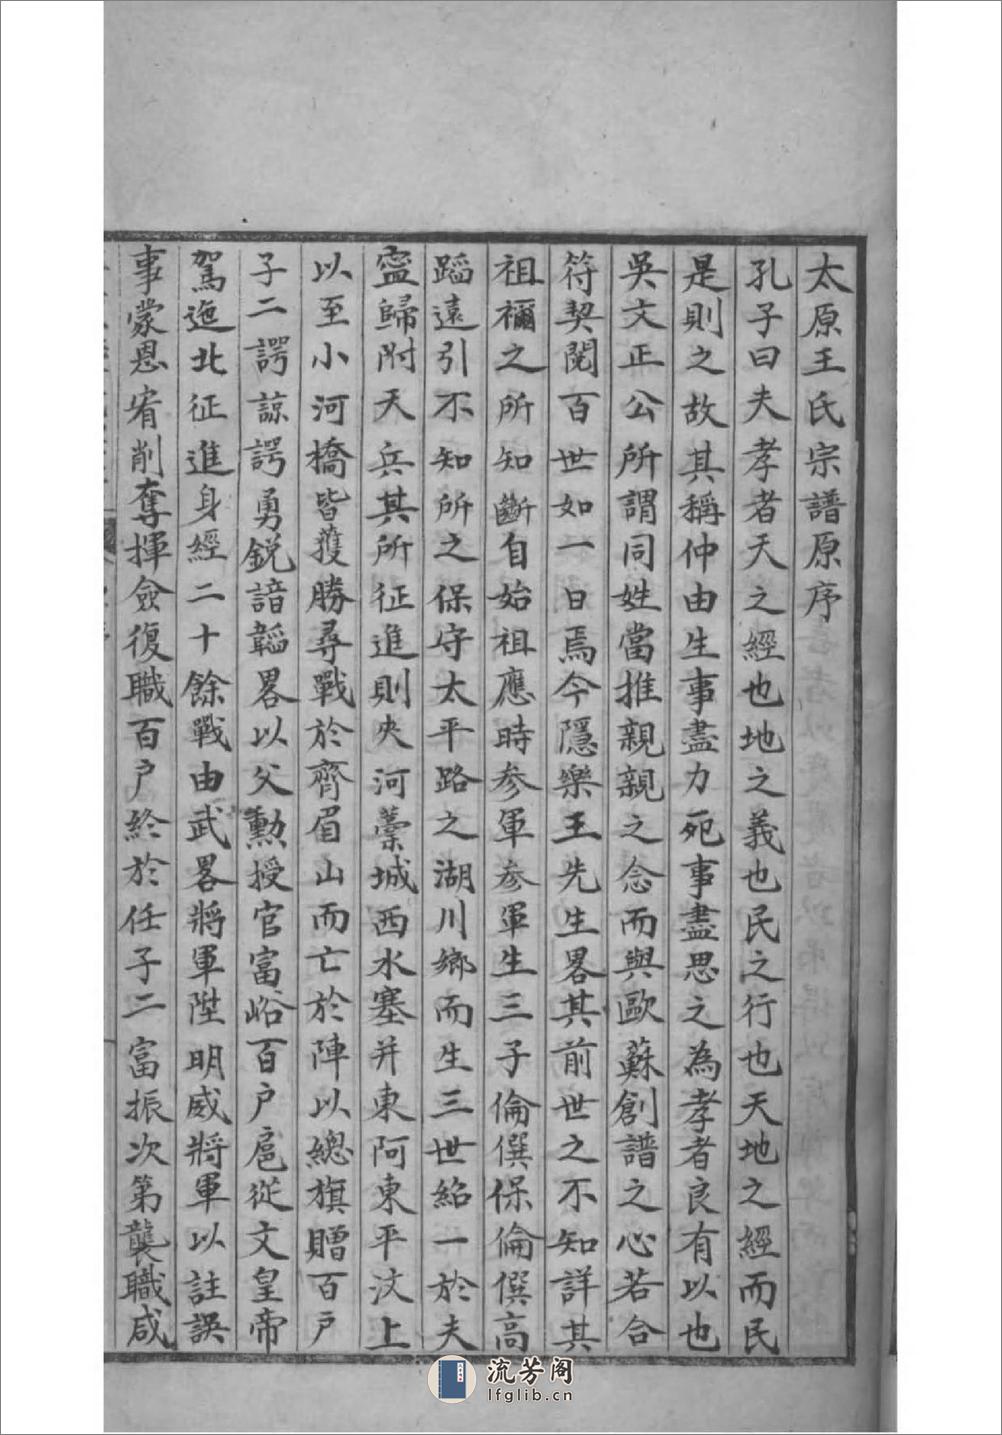 太原王氏宗譜原序
孔子曰夫孝者天之經也地之義也民之行也天地之經而民
是則之故其稱仲由生事盡力死事盡思之為孝者良有以也
吳文正公所謂同姓當推親親之念而與歐蘇創譜之心若合
符契閱百世如一日焉今隱樂王先生畧其前世之不知詳其
祖禰之所知斷自始祖應時參軍參軍生三子倫僎保倫僎高
蹈遠引不知所之保守太平路之湖川鄉而生三世紹一於夫
寍歸附天兵其所征進則夾河藁城西水塞并東阿東平汶上
以至小河橋皆獲勝尋戰於齊眉山而亡於陣以總旗贈百戶
子二諤諒諤勇銳諳韜畧以父勳授官富峪百戶扈從文皇帝
駕迤北征進身經二十餘戰由武畧將軍陞明威將軍以註誤
事蒙恩宥削奪揮僉復職百戶終於任子二富振次第襲職咸
流芳阁
lfglib.cn